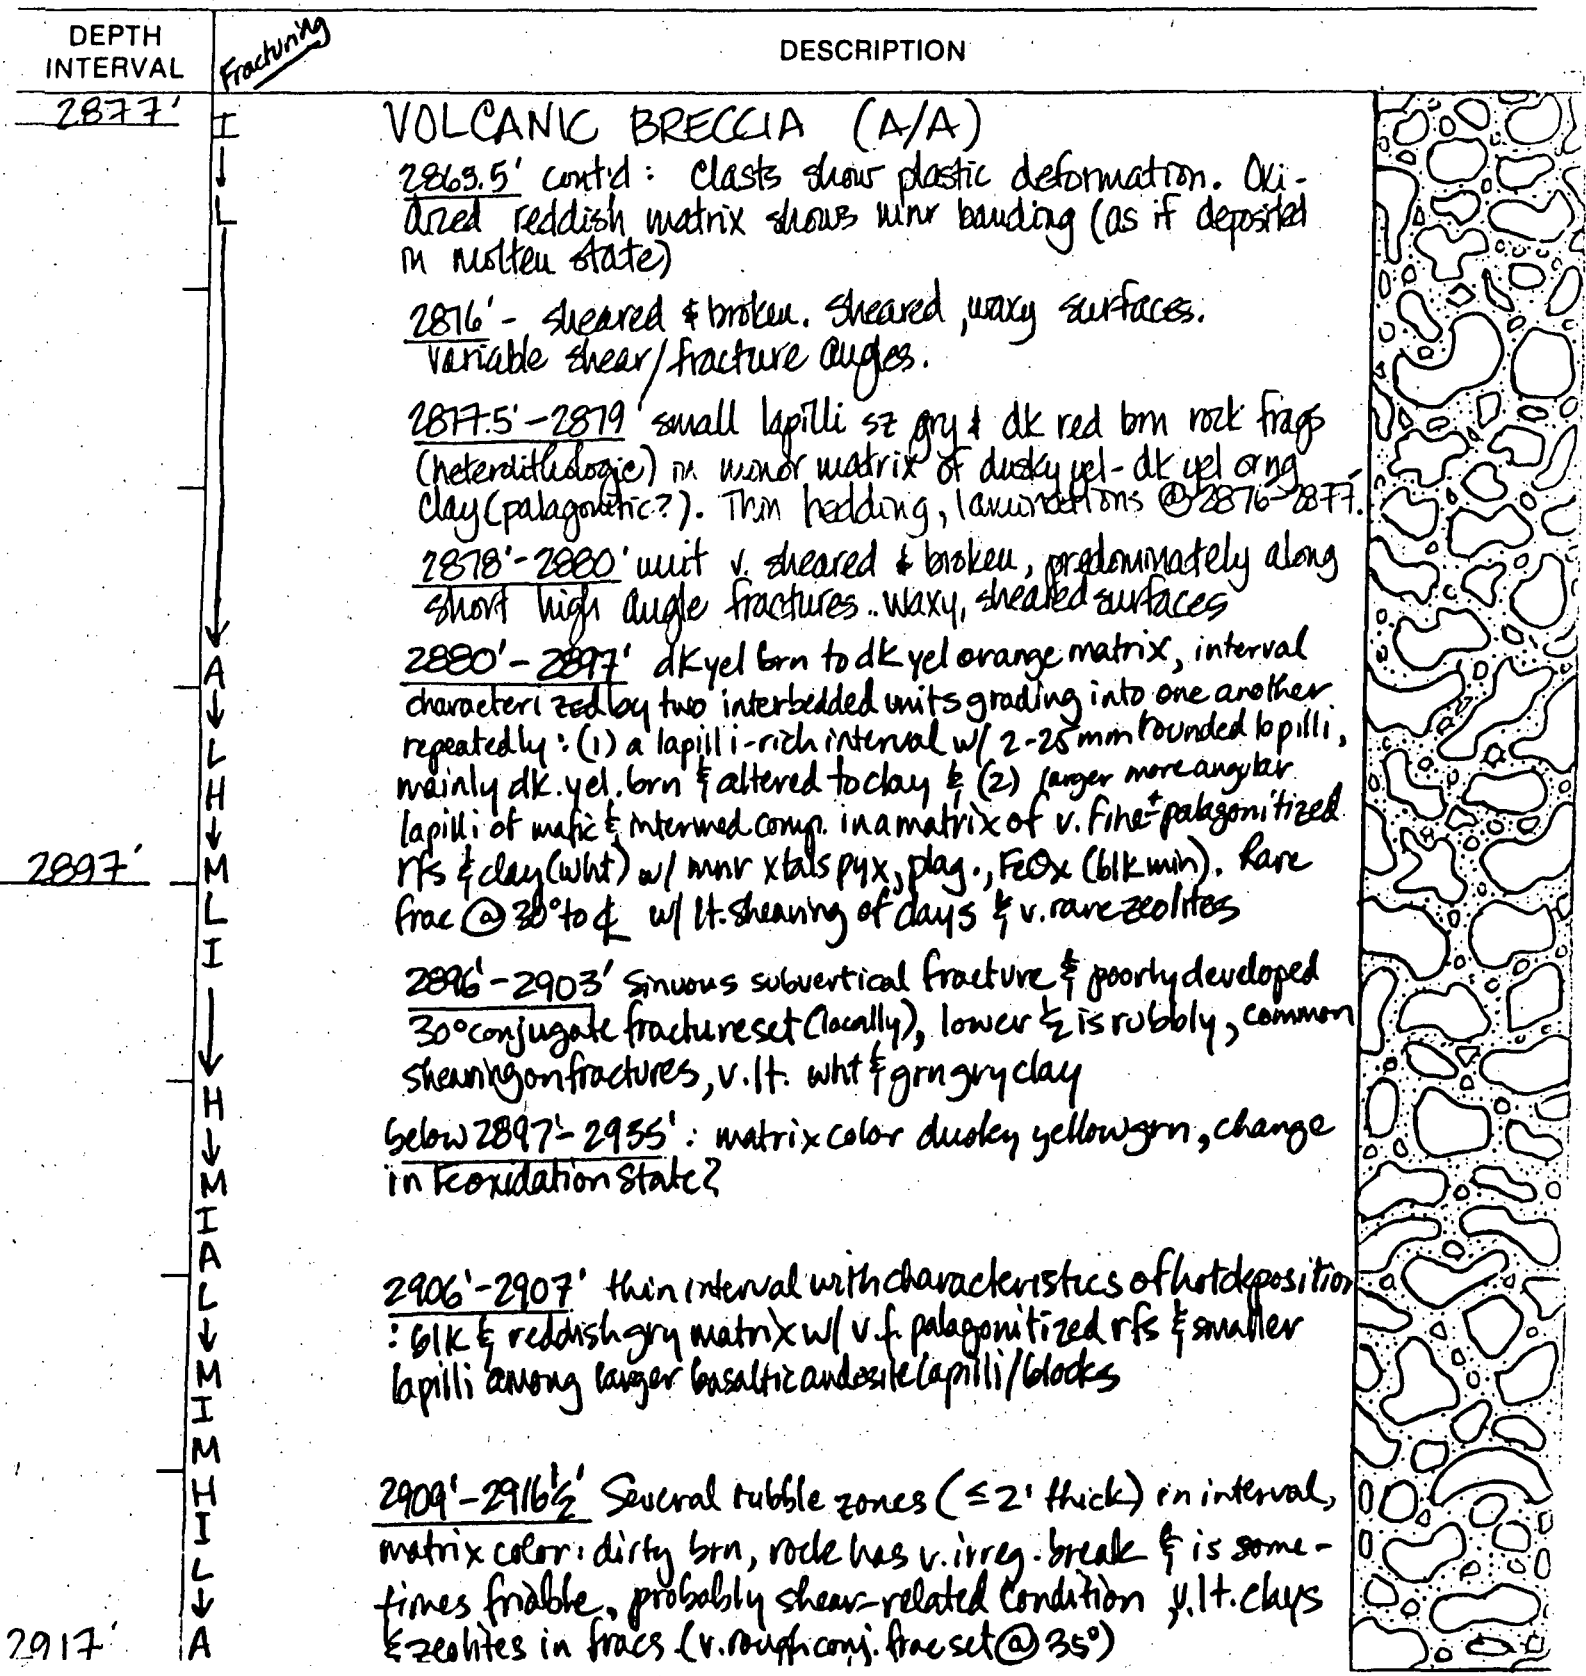 DEPTH
INTERVAL
Fracturing
DESCRIPTION
2877'
I
↓
L
↓
A
↓
L
H
↓
M
L
I
↓
H
↓
M
I
A
L
↓
M
I
M
H
I
L
↓
A
2897'
2917'
VOLCANIC BRECCIA (A/A)
2869.5' cont'd : Clasts show plastic deformation. Oxi-
dized reddish matrix shows minr banding (as if deposited
in molten state)
2876' - sheared & broken. Sheared, waxy surfaces.
Variable shear/fracture angles.
2877.5' - 2879' small lapilli sz gry & dk red brn rock frags
(heterolithologic) in minor matrix of dusky yel - dk yel orng
clay (palagonitic?). Thin bedding, laminations @ 2876-2877'.
2878' - 2880' unit v. sheared & broken, predominately along
short high angle fractures.. waxy, sheared surfaces
2880' - 2897' dk yel brn to dk yel orange matrix, interval
characterized by two interbedded units grading into one another
repeatedly : (1) a lapilli-rich interval w/ 2-25 mm rounded lapilli,
mainly dk. yel. brn & altered to clay & (2) larger more angular
lapilli of mafic & intermed comp. in a matrix of v. fine ± palagonitized
rfs & clay (wht) w/ mnr xtals pyx, plag., FeOx (blk min). Rare
frac @ 30° to ℄ w/ lt. shearing of clays & v. rare zeolites
2896' - 2903' Sinuous subvertical fracture & poorly developed
30° conjugate fracture set (locally), lower ½ is rubbly, common
shearing on fractures, v. lt. wht & grn gry clay
below 2897' - 2935' : matrix color dusky yellow grn, change
in Fe oxidation state?
2906' - 2907' thin interval with characteristics of hot deposition
: blk & reddish gry matrix w/ v.f. palagonitized rfs & smaller
lapilli among larger basaltic andesite lapilli/blocks
2909' - 2916½' Several rubble zones (≤2' thick) in interval,
matrix color: dirty brn, rock has v. irreg. break & is some-
times friable, probably shear-related condition, v. lt. clays
& zeolites in fracs (v. rough conj. frac set @ 35°)